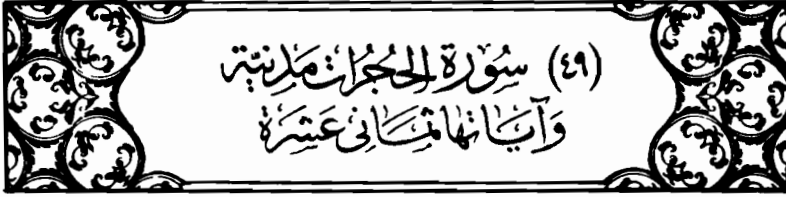 (٤٩) سُوْرَةُ الحُجُرَاتِ مَدَنِيَّة
وَآيَاتُهَا ثَمَانِى عَشَرَة